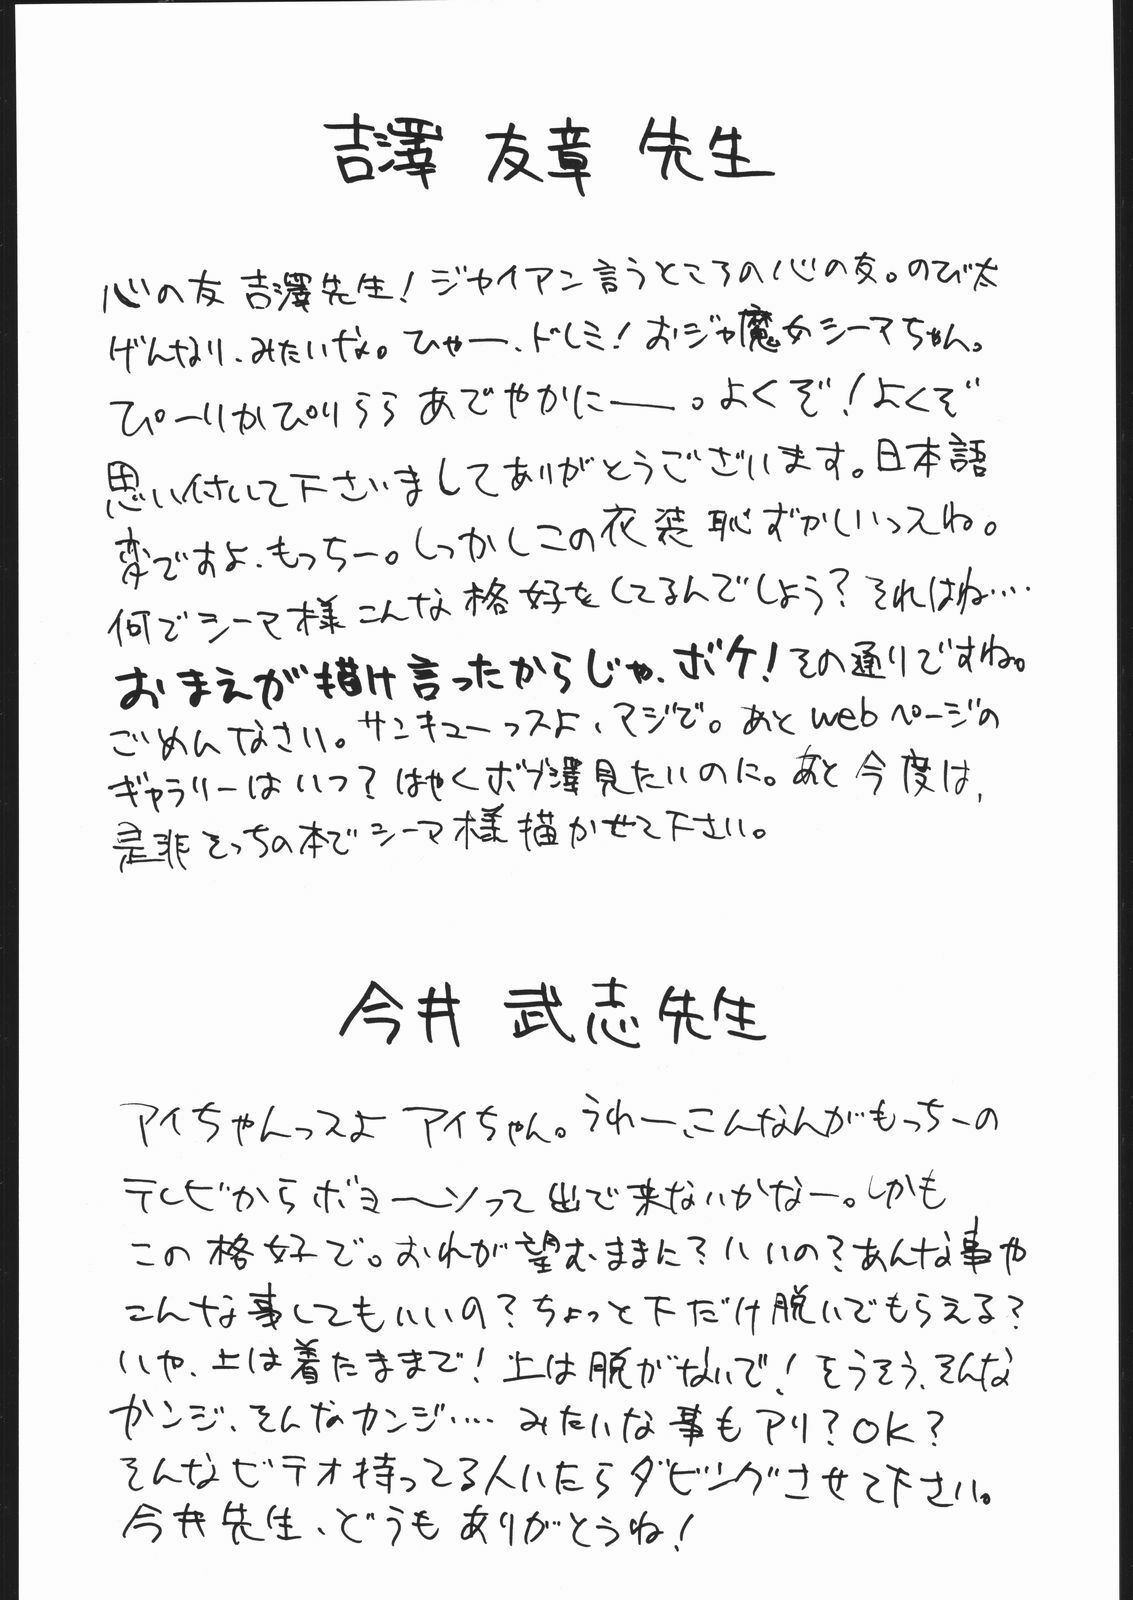 吉澤 友章 先生
心の友 吉澤先生!ジャイアン言うところの心の友。のび太
げんなり、みたいな。ひゃー、ドレミ!おジャ魔女シーマちゃん。
ぴーりかぴりらら あでやかにー。よくぞ!よくぞ
思い付いて下さいましてありがとうございます。日本語
変ですよ、もっちー。しっかしこの衣装恥ずかしいっスね。
何でシーマ様こんな格好をしてるんでしょう?それはね……
おまえが描け言ったからじゃ、ボケ!その通りですね。
ごめんなさい。サンキューっスよ、マジで。あとwebページの
ギャラリーはいつ?はやくボブ澤見たいのに。あと今度は、
是非そっちの本でシーマ様描かせて下さい。
今井 武志先生
アイちゃんっスよ アイちゃん。うれー、こんなんがもっちーの
テレビからボヨ〜ンって出で来ないかなー。しかも
この格好で。おれが望むままに?いいの?あんな事や
こんな事してもいいの?ちょっと下だけ脱いでもらえる?
いや、上は着たままで!上は脱がないで!そうそう、そんな
カンジ、そんなカンジ…… みたいな事もアリ?OK?
そんなビデオ持ってる人いたらダビングさせて下さい。
今井先生、どうもありがとうね!